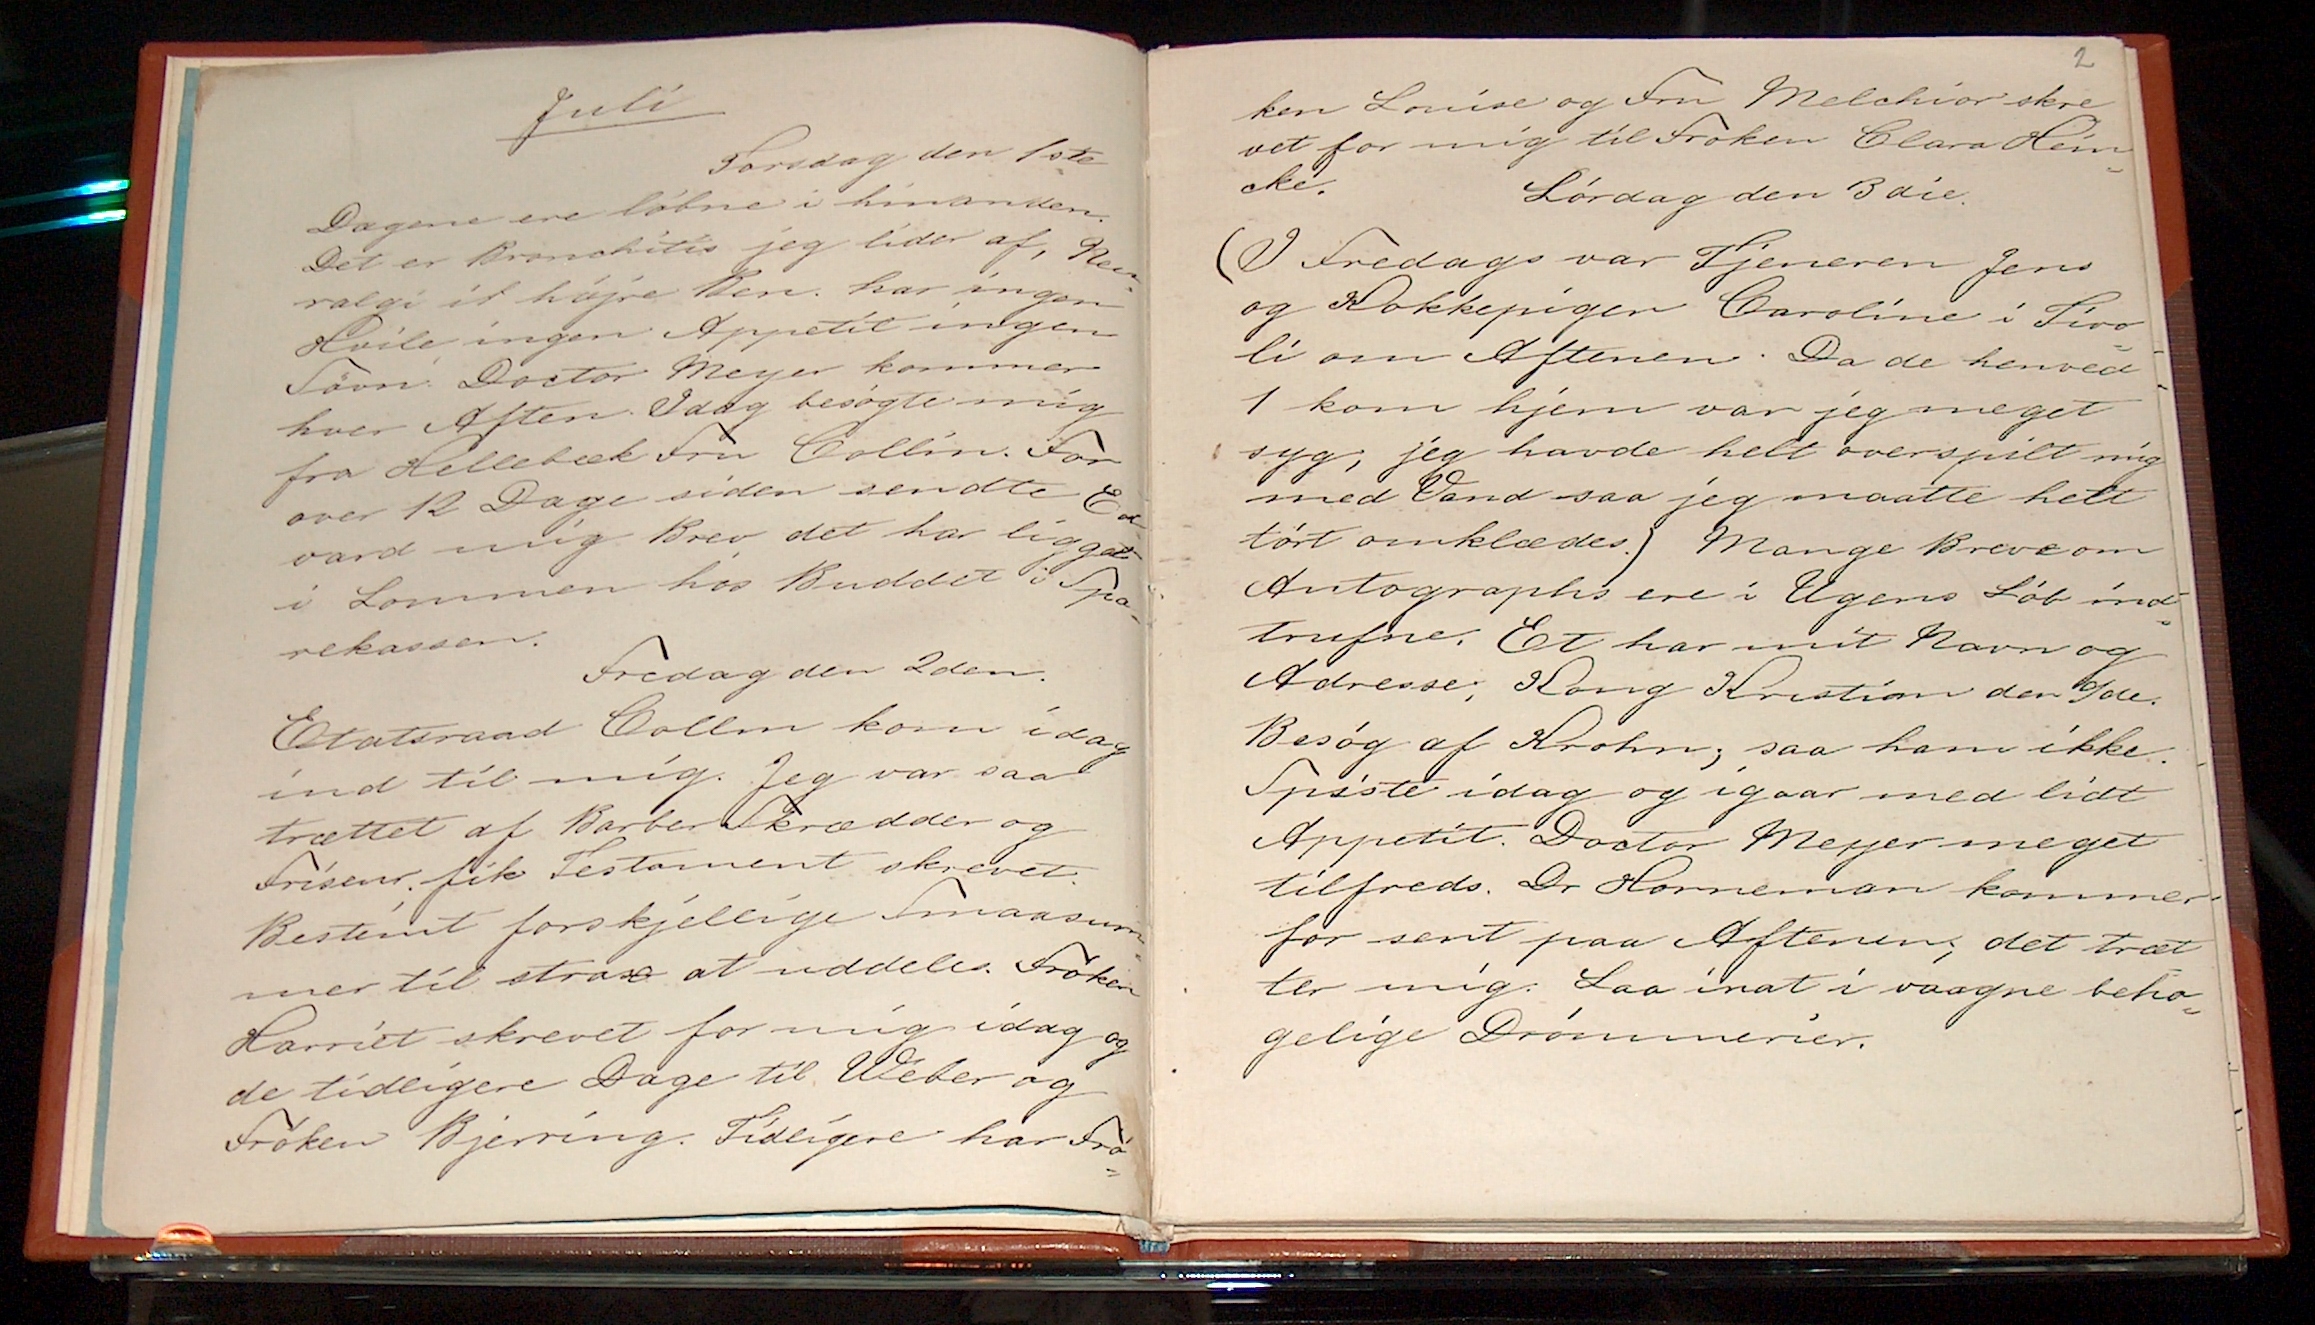 Juli
Torsdag den 1ste
Dagene ere löbne i hinanden.
Det er Bronchitis jeg lider af, Neu-
ralgi i höjre Ben. har ingen
Hvile ingen Appetit ingen
Sövn. Doctor Meyer kommer
hver Aften. Idag besögte mig
fra Hellebæk Fru Collin. For
over 12 Dage siden sendte Ed-
vard mig Brev det har ligget
i Lommen hos Buddet i Spa-
rekassen.
Fredag den 2den.
Etatsraad Collin kom idag
ind til mig. Jeg var saa
trættet af Barber Skrædder og
Friseur. fik Testament skrevet.
Bestemt forskjellige Smaasum-
mer til strax at uddeles. Fröken
Harriet skrevet for mig idag og
de tidligere Dage til Weber og
Fröken Bjerring. Tidligere har Frö-
2
ken Louise og Fru Melchior skre
vet for mig til Froken Clara Hein-
cke.
Lördag den 3die.
(I Fredags var Tjeneren Jens
og Kokkepigen Caroline i Tivo-
li om Aftenen. Da de henved
1 kom hjem var jeg meget
syg, jeg havde helt overspilt mig
med Vand saa jeg maatte helt
tört omklædes.) Mange Breve om
Autographs ere i Ugens Löb ind-
trufne. Et har mit Navn og
Adresse, Kong Kristian den 9de.
Besög af Krohn; saa ham ikke.
Spiste idag og igaar med lidt
Appetit. Doctor Meyer meget
tilfreds. Dr Horneman kommer
for sent paa Aftenen; det træt-
ter mig. Laa inat i vaagne beha-
gelige Drömmerier.